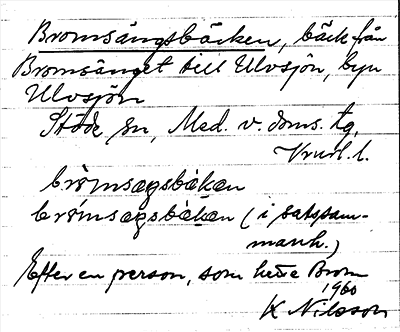 Bromsängsbäcken, bäck från
Bromsänget till Ulvsjön, byn
Ulvsjön
Stöde sn, Med. v. doms. tg,
l.
bròmsaŋsbäkan
bròmsaŋsbäkan (i satssam-
manh.)
Efter en person, som hette Brom
1960
K Nilsson